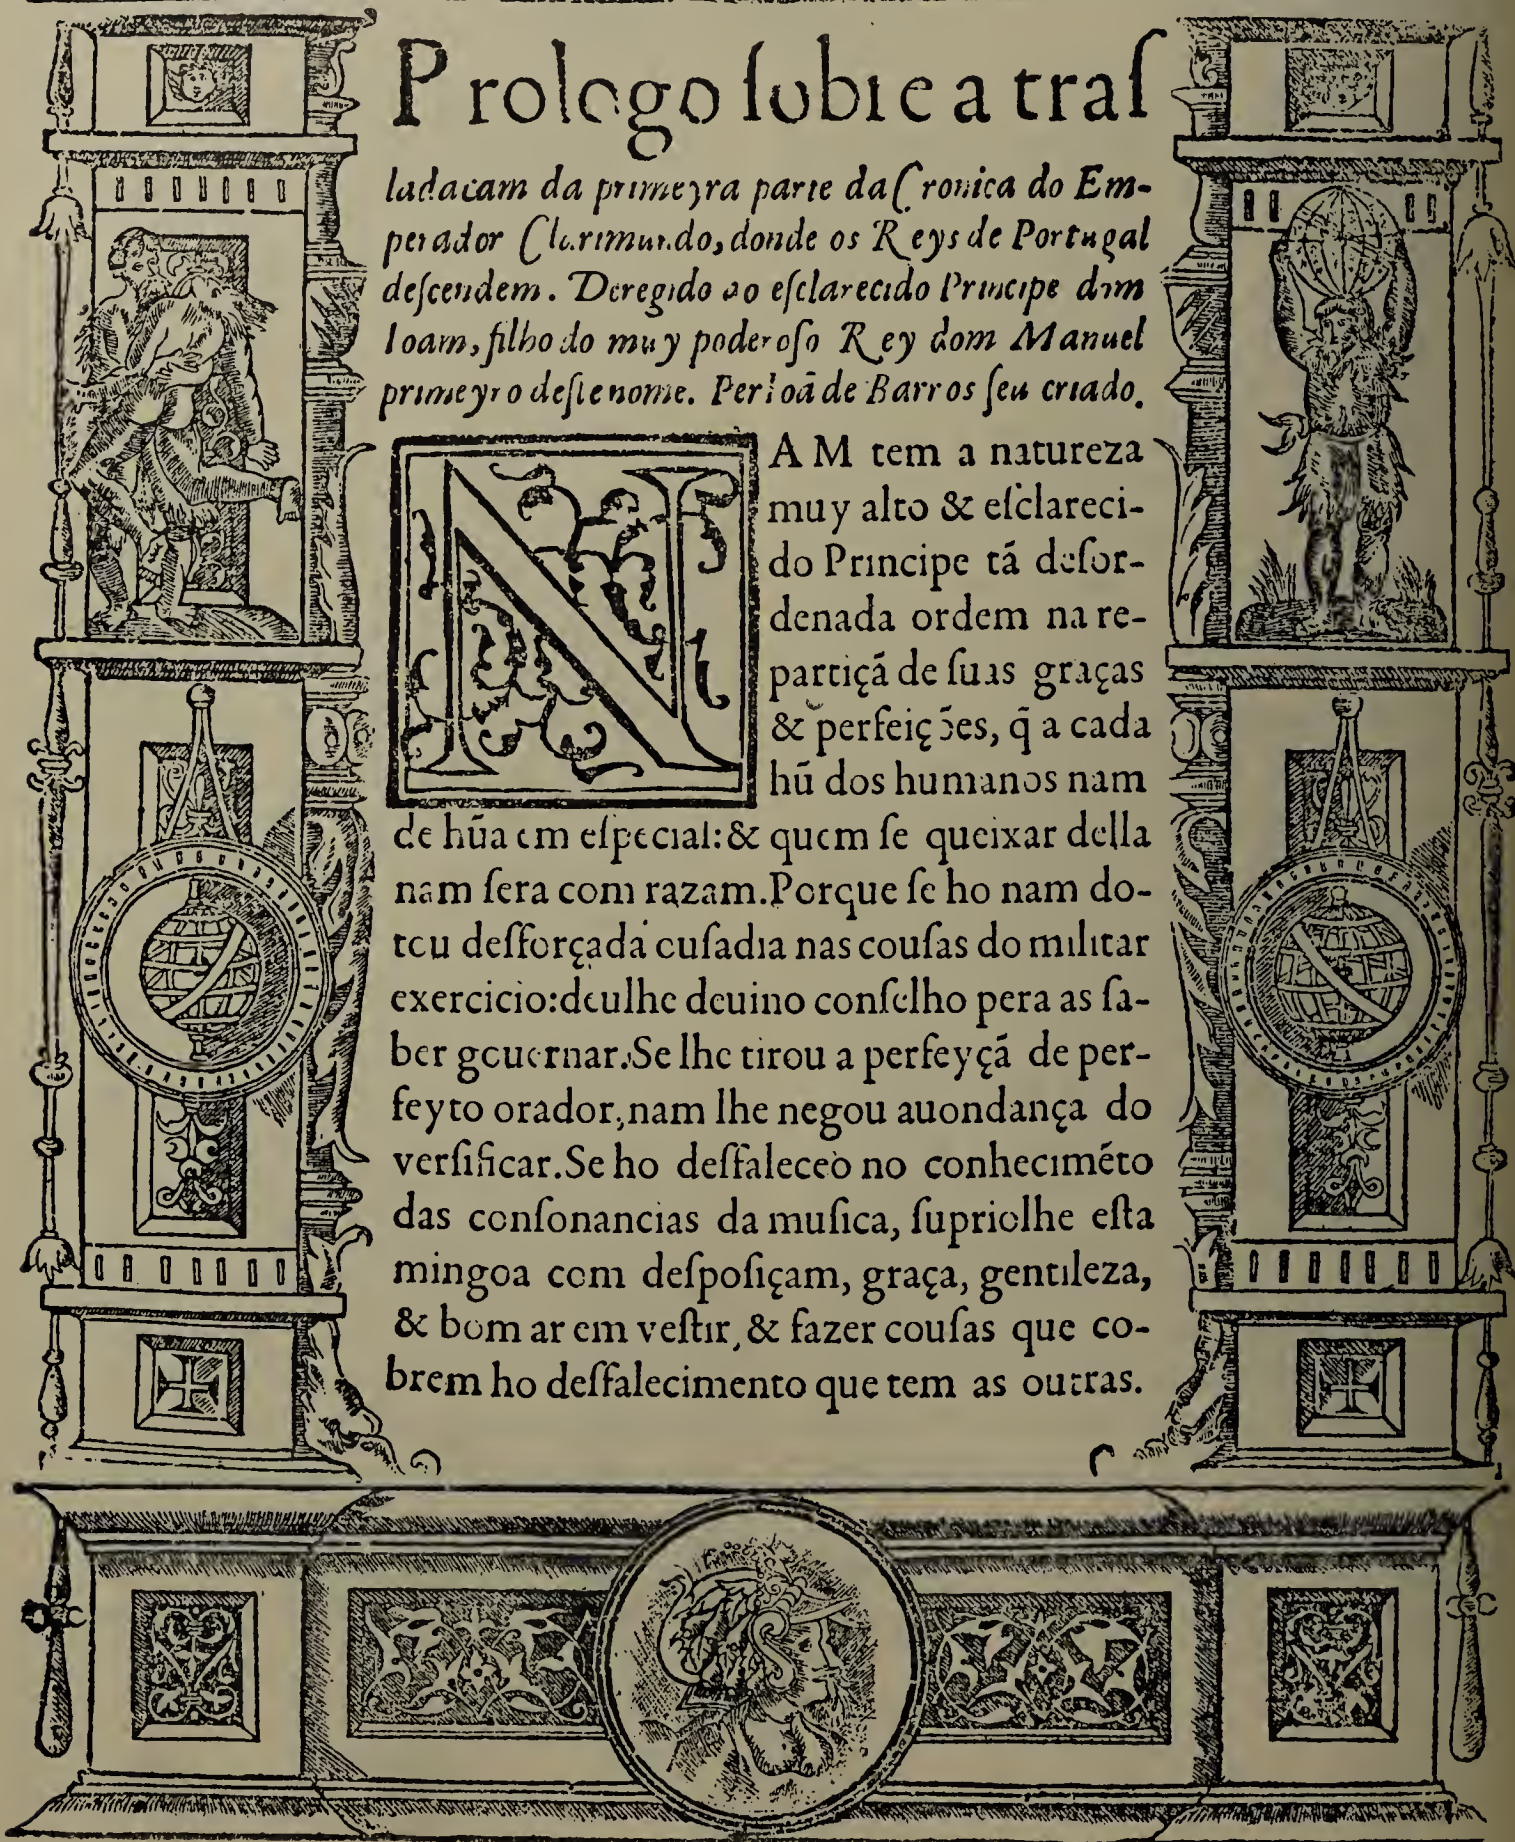 Prologo ſobre a traſ
ladaçam da primeyra parte da Cronica do Em-
perador Clarimundo, donde os Reys de Portugal
deſcendem. Deregido ao eſclarecido Principe dom
Ioam, filho do muy poderoſo Rey dom Manuel
primeyro deſte nome. Per Ioã de Barros ſeu criado.
NAM tem a natureza
muy alto & eſclareci-
do Principe tã deſor-
denada ordem na re-
partiçã de ſuas graças
& perfeições, q̃ a cada
hũ dos humanos nam
de hũa em eſpecial: & quem ſe queixar della
nam ſera com razam. Porque ſe ho nam do-
tou deſforçada ouſadia nas couſas do militar
exercicio: deulhe deuino conſelho pera as ſa-
ber gouernar. Se lhe tirou a perfeyçã de per-
feyto orador, nam lhe negou auondança do
verſificar. Se ho desfaleceo no conhecimẽto
das conſonancias da muſica, ſupriolhe eſta
mingoa com deſpoſiçam, graça, gentileza,
& bom ar em veſtir, & fazer couſas que co-
brem ho deſfalecimento que tem as outras.